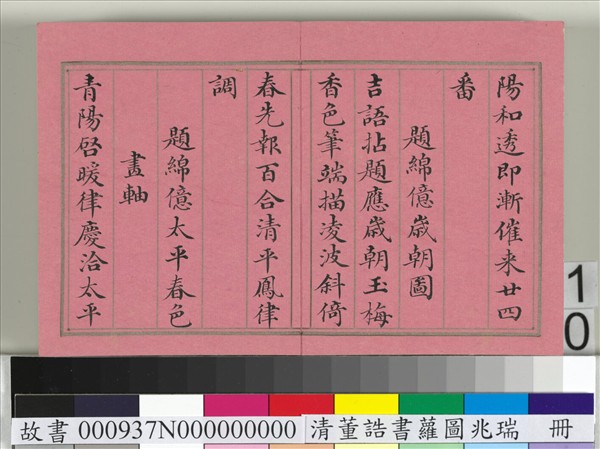 陽和透即漸催来廿四
番
題綿億歲朝圖
吉語拈題應歲朝玉梅
香色筆端描凌波斜倚
春先報百合清平鳳律
調
題綿億太平春色
畫軸
青陽啓暖律慶洽太平
10
故書 000937N000000000 清董誥書蘿圖兆瑞 冊